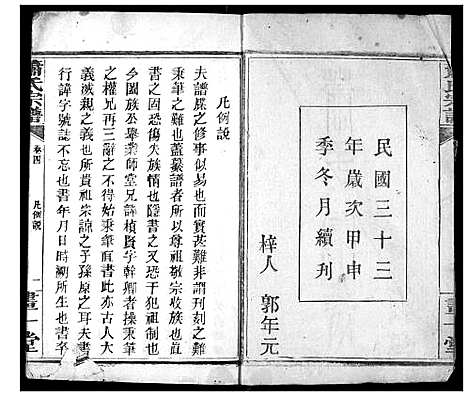 民國三十三
年歲次甲申
季冬月續刊
梓人　郭年元
凡例說
夫譜牒之修事似易也而實甚難非謂刊刻之難
秉筆之難也蓋纂譜者所以尊祖敬宗收族也直
書之固恐傷失族情也隱書之又恐干犯國憲也
今國族公舉業師堂兄諱楨賢字幹卿者操秉筆
之權兄再三辭之不得始秉筆直書此亦古人大
義滅親之義也所貴祖宗諒之子孫原之耳夫書
行諱字號誌不忘也書年月日時溯所生也書卒
蕭氏宗譜
卷四
凡例說
一
畫一堂